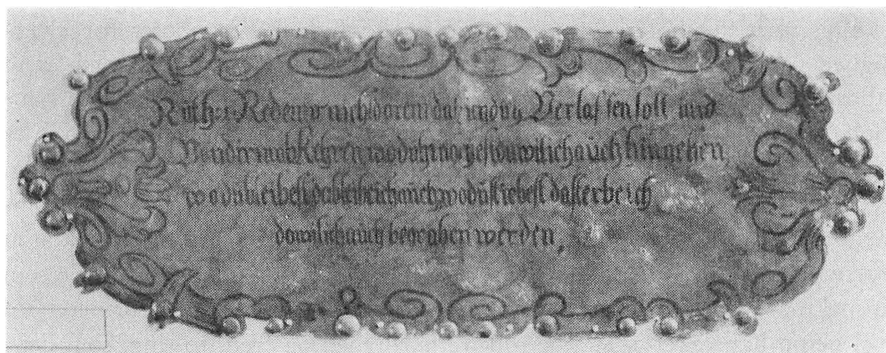 Rúth: 1 Rede mir nicht darein das Verlassen solt und
Von dir umbkehren wo du hingehest da will ich aúch hingehen,
wo du bleibest da bleibe ich aúch, wo dú stirbest da sterbe ich
da will ich aúch begraben werden,